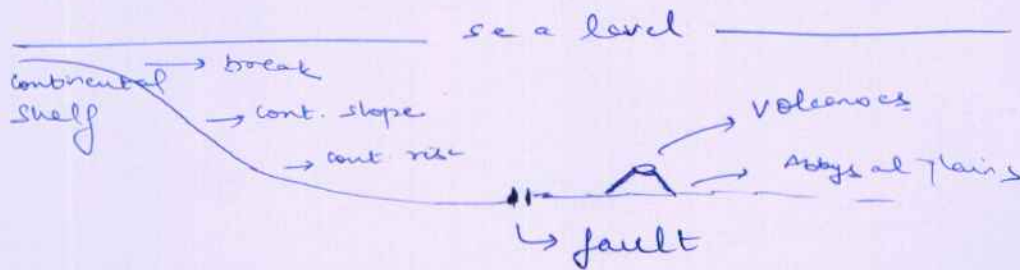 sea level
continental shelf
break
cont. slope
cont. rise
volcanoes
Abbysal Plains
fault